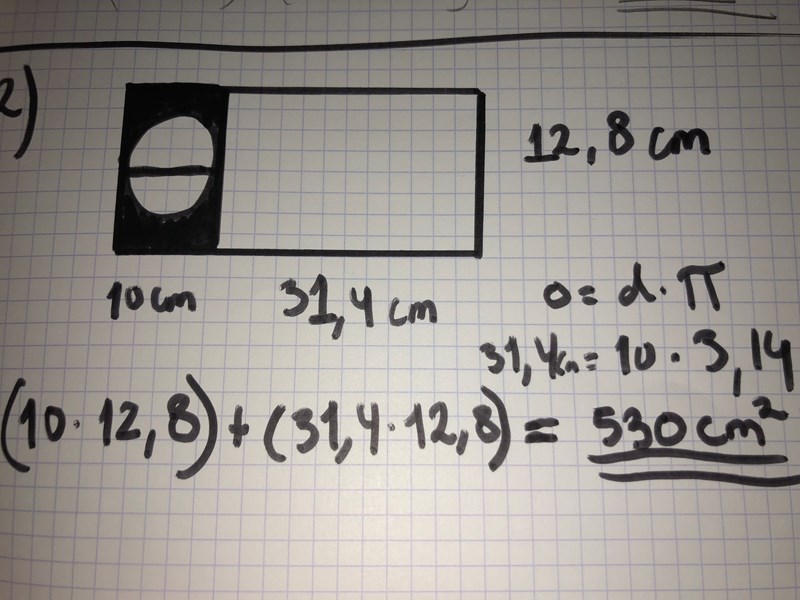 2)
12,8 cm
10 cm 31,4 cm
o = d · π
31,4cm = 10 · 3,14
(10 · 12,8) + (31,4 · 12,8) = 530 cm²